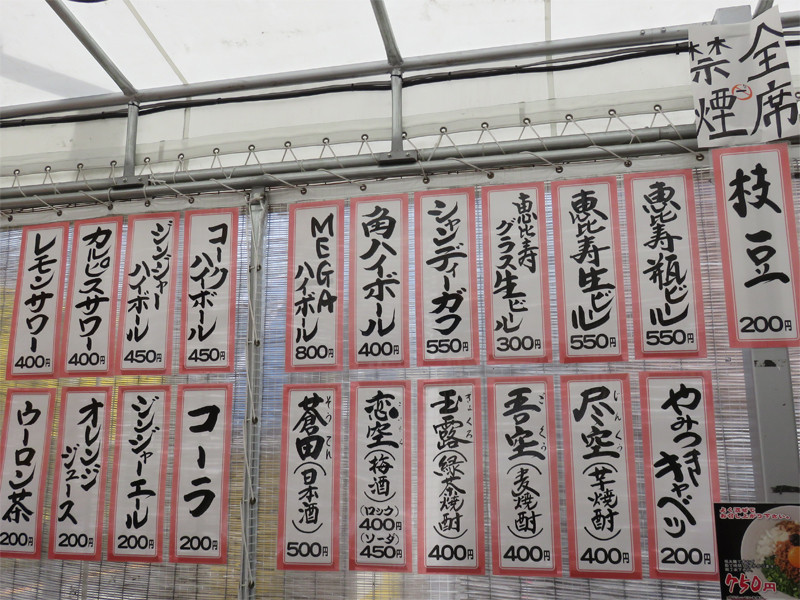 全席
禁煙
枝豆
200円
恵比寿瓶ビール
550円
恵比寿生ビール
550円
恵比寿
グラス生ビール
300円
シャンディーガフ
550円
角ハイボール
400円
MEGA
ハイボール
800円
コーク
ハイボール
450円
ジンジャー
ハイボール
450円
カルピスサワー
400円
レモンサワー
400円
やみつき
キャベツ
200円
尽空
じんくう
(芋焼酎)
400円
吾空
ごくう
(麦焼酎)
400円
玉露
ぎょくろ
(緑茶焼酎)
400円
恋空
(梅酒)
(ロック)
400円
(ソーダ)
450円
蒼田
そうでん
(日本酒)
500円
コーラ
200円
ジンジャーエール
200円
オレンジ
ジュース
200円
ウーロン茶
200円
よく混ぜて
お召し上がり下さい。
750円